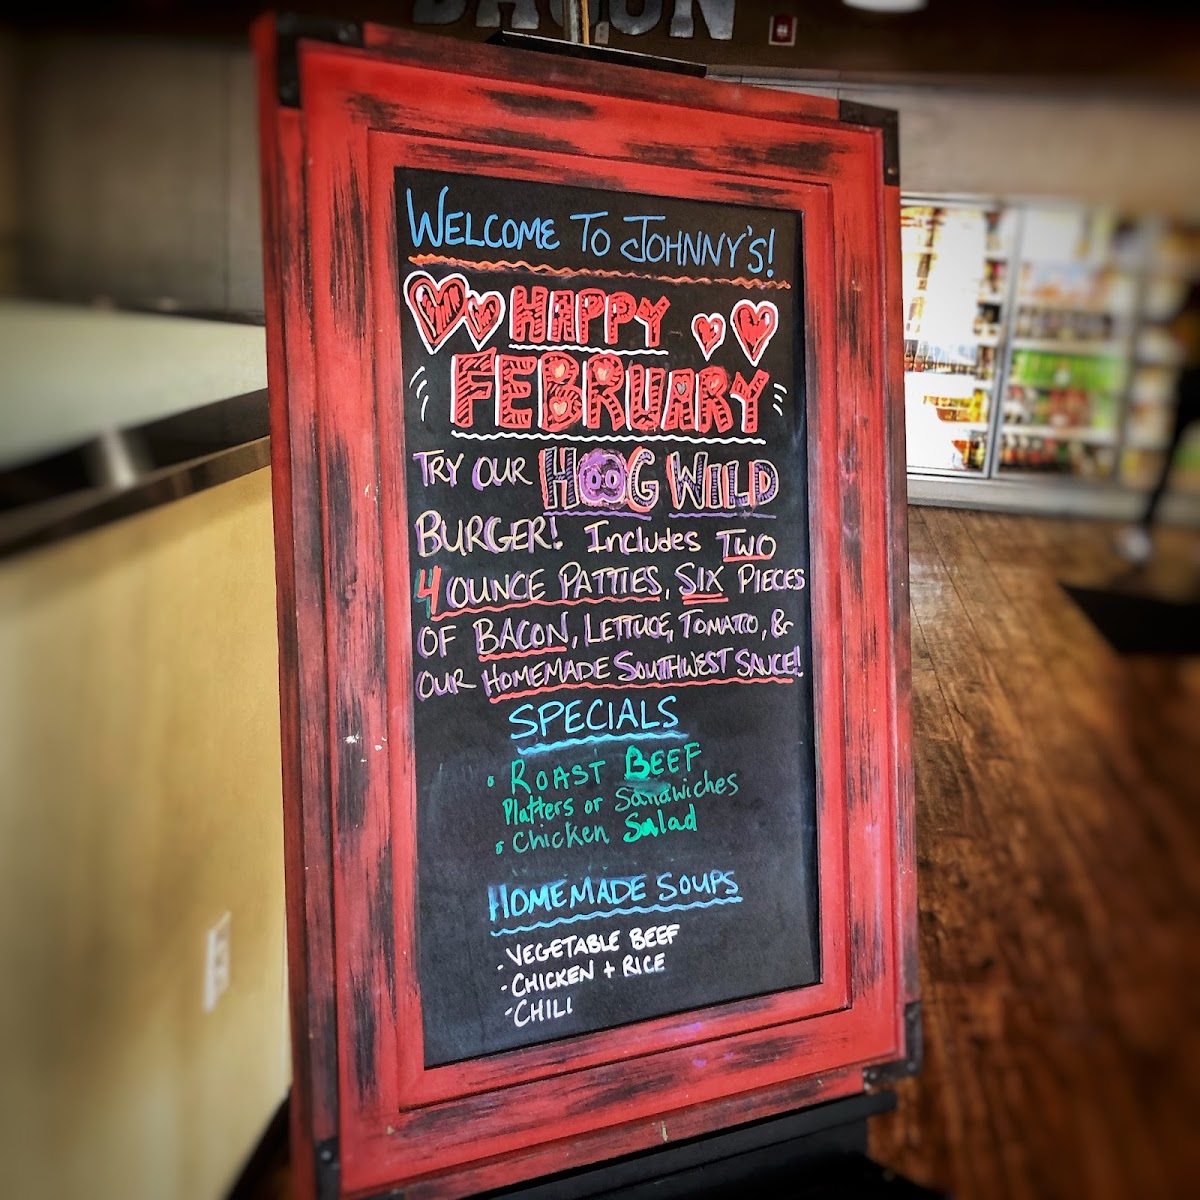 BACON
WELCOME TO JOHNNY'S!
HAPPY
FEBRUARY
TRY OUR HOG WILD
BURGER! Includes TWO
4 OUNCE PATTIES, SIX PIECES
OF BACON, LETTUCE, TOMATO, &
OUR HOMEMADE SOUTHWEST SAUCE!
SPECIALS
• ROAST BEEF
Platters or Sandwiches
• Chicken Salad
HOMEMADE SOUPS
- VEGETABLE BEEF
- CHICKEN + RICE
- CHILI